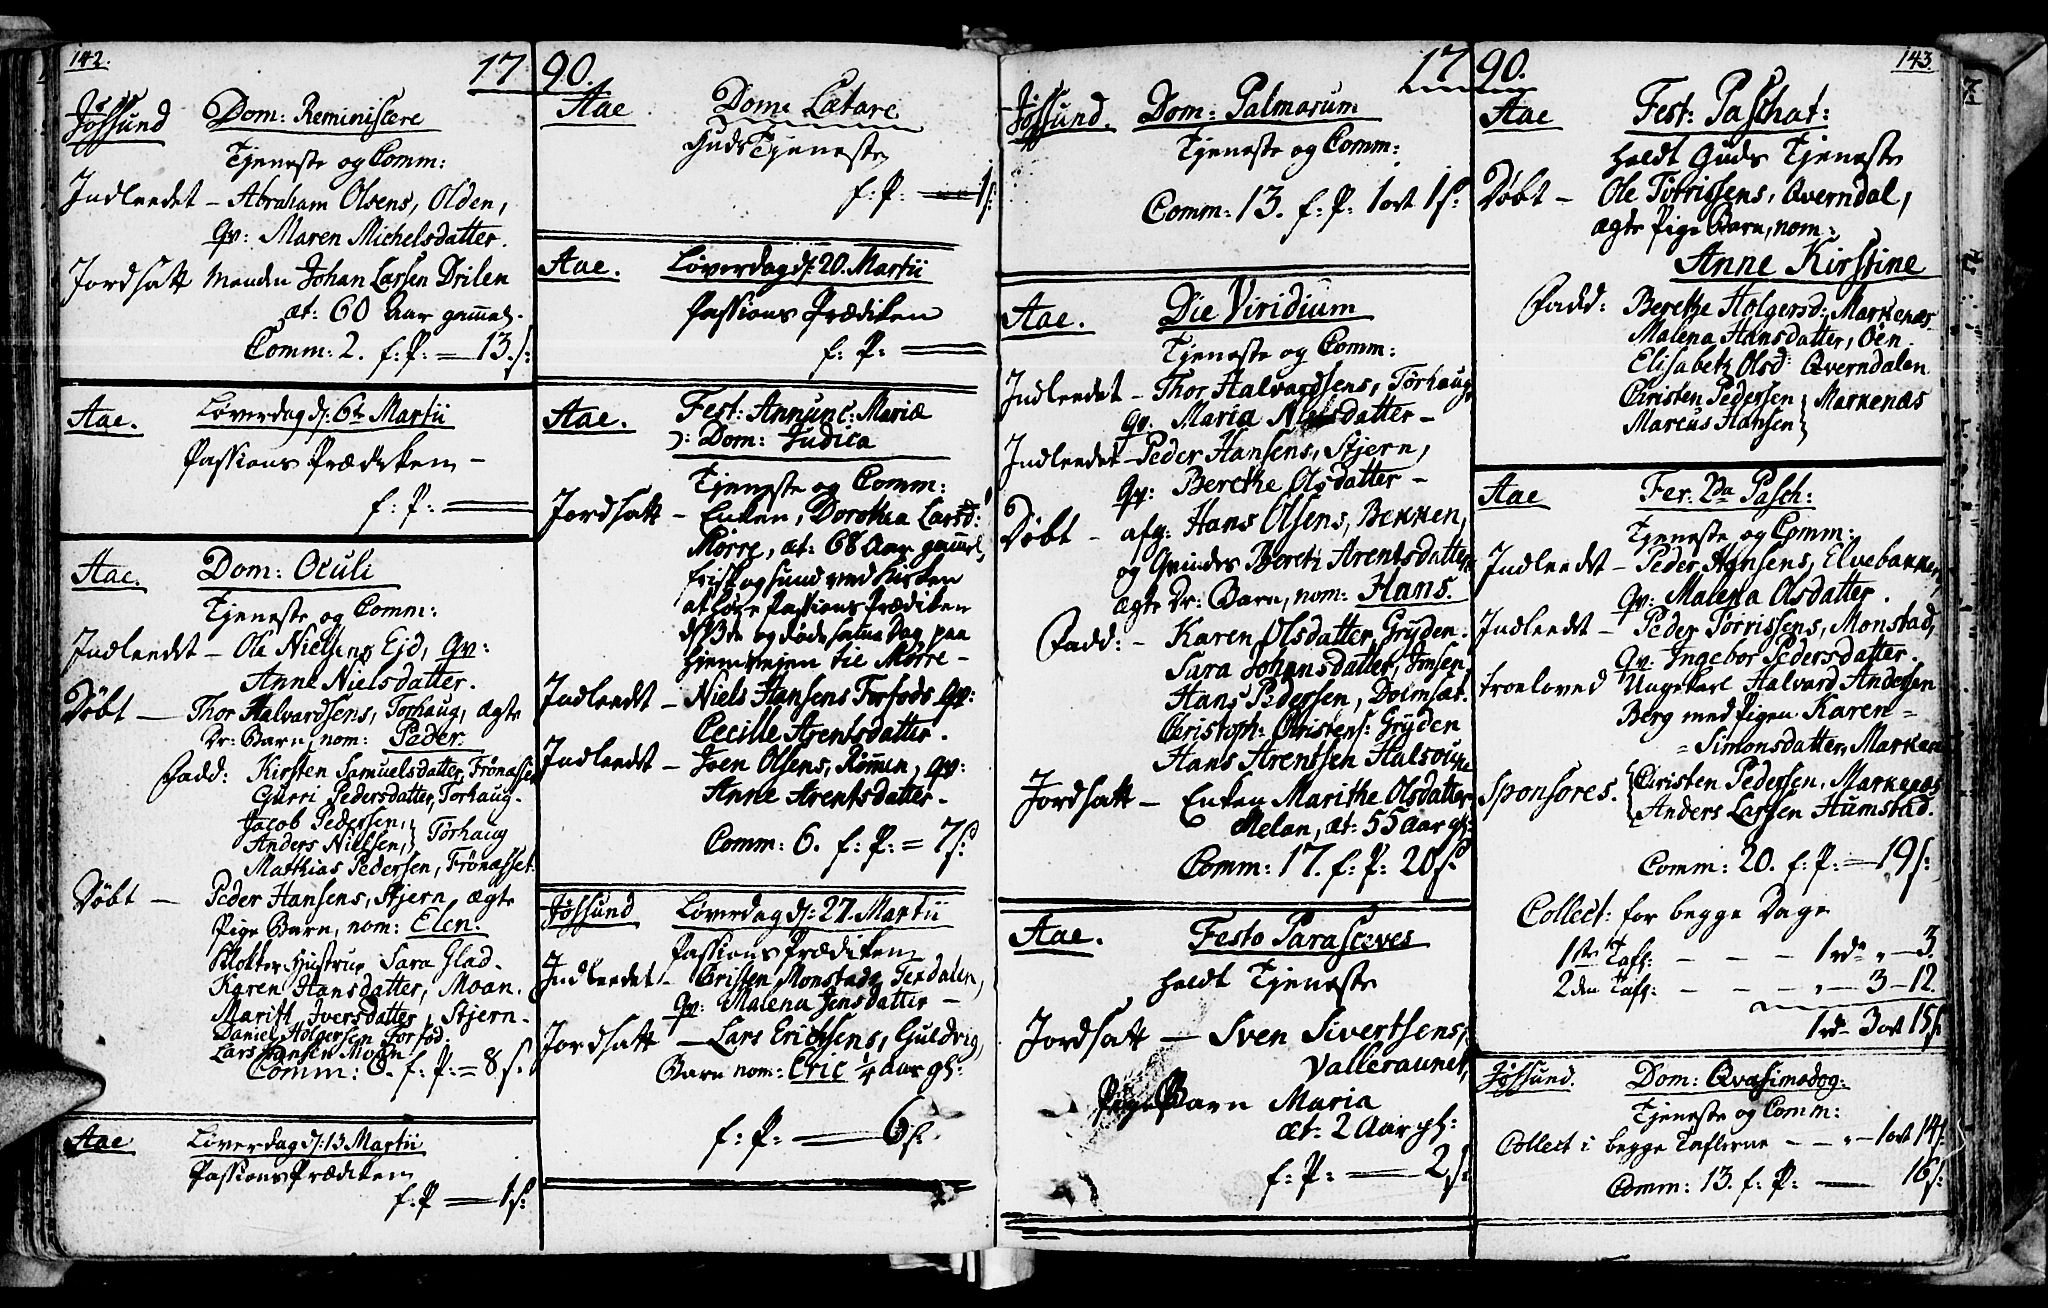 142.
17 90.
Jøssund Dom: Reminiscere
Tjeneste og Comm:
Indleedet – Abraham Olsens, Olden,
Qv: Maren Michelsdatter.
Jordsatt Manden Johan Larsen Drilen
æt: 60 Aar gamel.
Comm: 2. f: P: = 13. s:
Aae. Løverdag d: 6te Martii
Passions Prædiken –
f: P: =
Aae. Dom: Oculi
Tjeneste og Comm:
Indleedet – Ole Nielsens Ejd, Qv:
Anne Nielsdatter.
Døbt – Thor Halvardsens, Torhaug, ægte
Dr: Barn, nom: Peder.
Fadd: Kirsten Samuelsdatter, Frönasset
Gurri Pedersdatter, Torhaug.
Jacob Pedersen,
Anders Nielsen, } Törhaug
Matthias Pedersen, Frönasset.
Døbt – Peder Hansens, Stjern ægte
Pige Barn, nom: Elen.
Klokker Hustrue Sara Glad.
Karen Hansdatter, Moan.
Maritt Iversdatter, Stjern.
Daniel Holgersen Forfod.
Lars Hansen Moan
Comm: 8. f: P: = 8 s.
Aae Løverdag d: 13 Martii
Passions Prædiken
f: P = 1 s:
Aae Dom: Lætare
Guds Tjeneste
f: P: = 1 s:
Aae. Løverdag d: 20. Martii
Passions Prædiken
f: P: =
Aae. Fest: Annunc: Mariæ
ɔ: Dom: Judica
Tjeneste og Comm:
Jordsatt – Enken, Dorothea Larsd:
Mörre, æt: 68 Aar gamel,
frisk og sund ved Kirken
at høre Passions Prædiken
d: 13de og døde samme Dag paa
Hjemvejen til Mørre –
Indleedet – Niels Hansens Forfods Qv:
Cecille Arentsdatter.
Indleedet – Joen Olsens, Römen, Qv:
Anne Arentsdatter.
Comm: 6. f: P: = 7 s:
Jøssund Løverdag d: 27. Martii
Passions Prædiken
Indleedet – Christen Monstads Terdalen,
Qv: Malena Jensdatter –
Jordsatt – Lars Erichsens, Guldvig,
Barn nom: Eric 1/4 Aar gl:
f: P: — 6 s:
17 90.
143.
Jøssund. Dom: Palmarum
Tjeneste og Comm:
Comm: 13. f: P: 1 ort 1 s:
Aae. Die Viridium
Tjeneste og Comm:
Indleedet – Thor Halvardsens, Törhaug
Qv. Maria Nielsdatter –
Indleedet – Peder Hansens, Stjern,
Qv: Berethe Olsdatter –
Døbt – afg: Hans Olsens, Bekken,
og Qvindes Beret: Arentsdatter
ægte Dr: Barn, nom: Hans.
Fadd: – Karen Olsdatter, Gryden.
Sara Johansdatter, Imsen.
Hans Pedersen, Dolmsæt.
Christoph: Christens: Gryden
Hans Arentsen Halvoune
Jordsatt – Enken Marithe Olsdatter
Melan, æt: 55 Aar gl:
Comm: 17. f: P: 20 s.
Aae. Festo Parasceves
holdt Tjeneste
Jordsatt – Sven Sivertsens,
Valleraunet,
Pige Barn Maria
æt: 2 Aar gl:
f: P: — 2 s:
Aae Fest: Paschat:
holdt Guds Tjeneste
Døbt – Ole Torrissens, Qverndal,
ægte Pige Barn, nom:
Anne Kirstine
Fadd: Berethe Holgersd: Markenæs
Malena Hansdatter, Öen.
Elisabeth Olsd: Qverndalen
Christen Pedersen
Marcus Hansen } Markenæs
Aae Fer: 2da Pasch:
Tjeneste og Comm:
Indleedet – Peder Hansens, Elvebakken,
Qv: Malena Olsdatter.
Indleedet – Peder Torrissens, Monstad,
Qv: Ingebor Pedersdatter.
Troeloved Ungekarl Halvard Andersen
Berg med Pigen Karen =
= Simonsdatter, Marken
Sponsores. { Christen Pedersen, Markenæs
Anders Larsen Humstad.
Comm: 20. f: P: — 19 s:
Collect: for begge Dage
1ste Tafl: – – – 1 rdr „ – 3.
2den Tafl: – – – „ – 3 – 12.
1 rd – 3 ort 15 s.
Jøssund. Dom: Qvasimodog:
Tjeneste og Comm:
Collect i begge Taflerne – – „ – 1 ort 14 s.
Comm: 13. f: P: — 16 s: